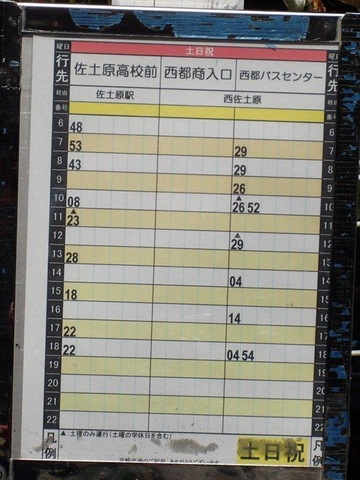 曜日 土日祝 曜日
行先 佐土原高校前 西都商入口 西都バスセンター 行先
経由 佐土原駅 西佐土原 経由
番号 番号
6 48 6
7 53 29 7
8 43 29 8
9 26 9
10 08 ▲26 52 10
11 ▲23 11
12 ▲29 12
13 28 13
14 04 14
15 18 15
16 14 16
17 22 17
18 22 04 54 18
19 19
20 20
21 21
22 22
凡例 ▲:土曜のみ運行(土曜の学休日を含む) 土日祝 凡例